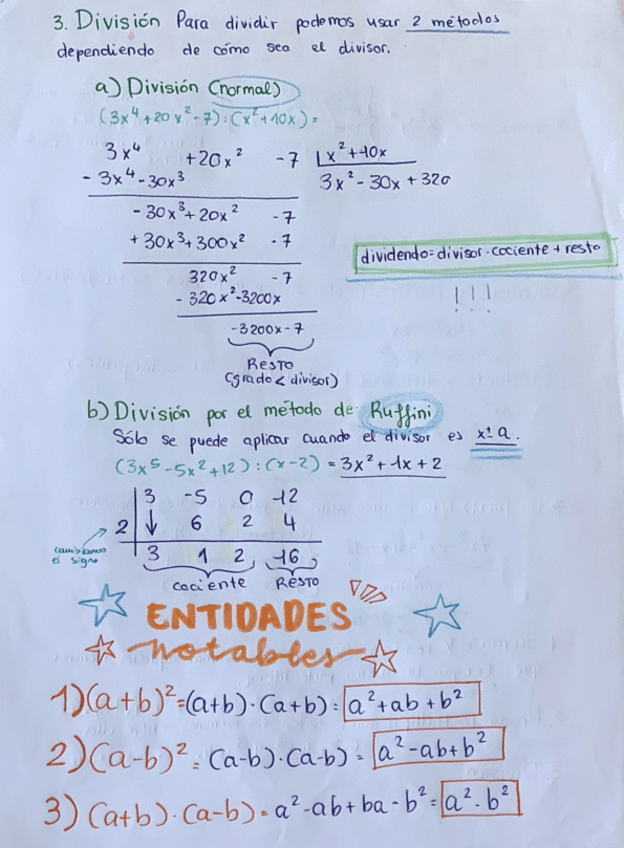 3. División Para dividir podemos usar 2 métodos
dependiendo de cómo sea el divisor.
a) División (normal)
(3x⁴+20x²-7):(x²+10x)=
3x⁴ +20x² -7 | x²+10x
- 3x⁴-30x³ 3x²-30x+320
- 30x³+20x² -7
+ 30x³+300x² -7
320x² -7
- 320x²-3200x
-3200x-7
Resto
(grado < divisor)
dividendo=divisor·cociente+resto
! ! !
b) División por el método de Ruffini
Sólo se puede aplicar cuando el divisor es x±a.
(3x⁵-5x²+12):(x-2) = 3x²+1x+2
3 -5 0 12
2 ↓ 6 2 4
3 1 2 16
cambiamos el signo
cociente Resto
ENTIDADES
notables
1)(a+b)²=(a+b)·(a+b)= a²+ab+b²
2)(a-b)²=(a-b)·(a-b)= a²-ab+b²
3)(a+b)·(a-b)=a²-ab+ba-b²= a²-b²